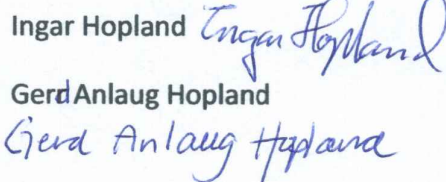 Ingar Hopland Ingar Hopland
Gerd Anlaug Hopland
Gerd Anlaug Hopland